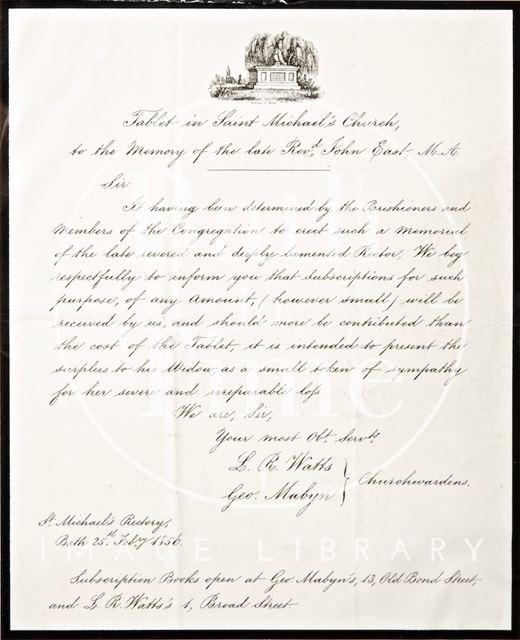 Tablet in Saint Michael's Church,
to the Memory of the late Revd. John East, M.A.
Sir
It having been determined by the Parishioners and
Members of the Congregation to erect such a Memorial
of the late revered and deeply lamented Rector, We beg
respectfully to inform you that subscriptions for such
purpose, of any Amount, (however small) will be
received by us, and should more be contributed than
the cost of the Tablet, it is intended to present the
surplus to his Widow, as a small token of sympathy
for her severe and irreparable loss.
We are, Sir,
Your most Obt. Servts.
L. R. Watts
Geo. Mabyn
Churchwardens.
St. Michael's Rectory,
Bath 25th Feby 1856
IMAGE LIBRARY
Subscription Books open at Geo Mabyn's, 13, Old Bond Street,
and L. R. Watts's 1, Broad Street.